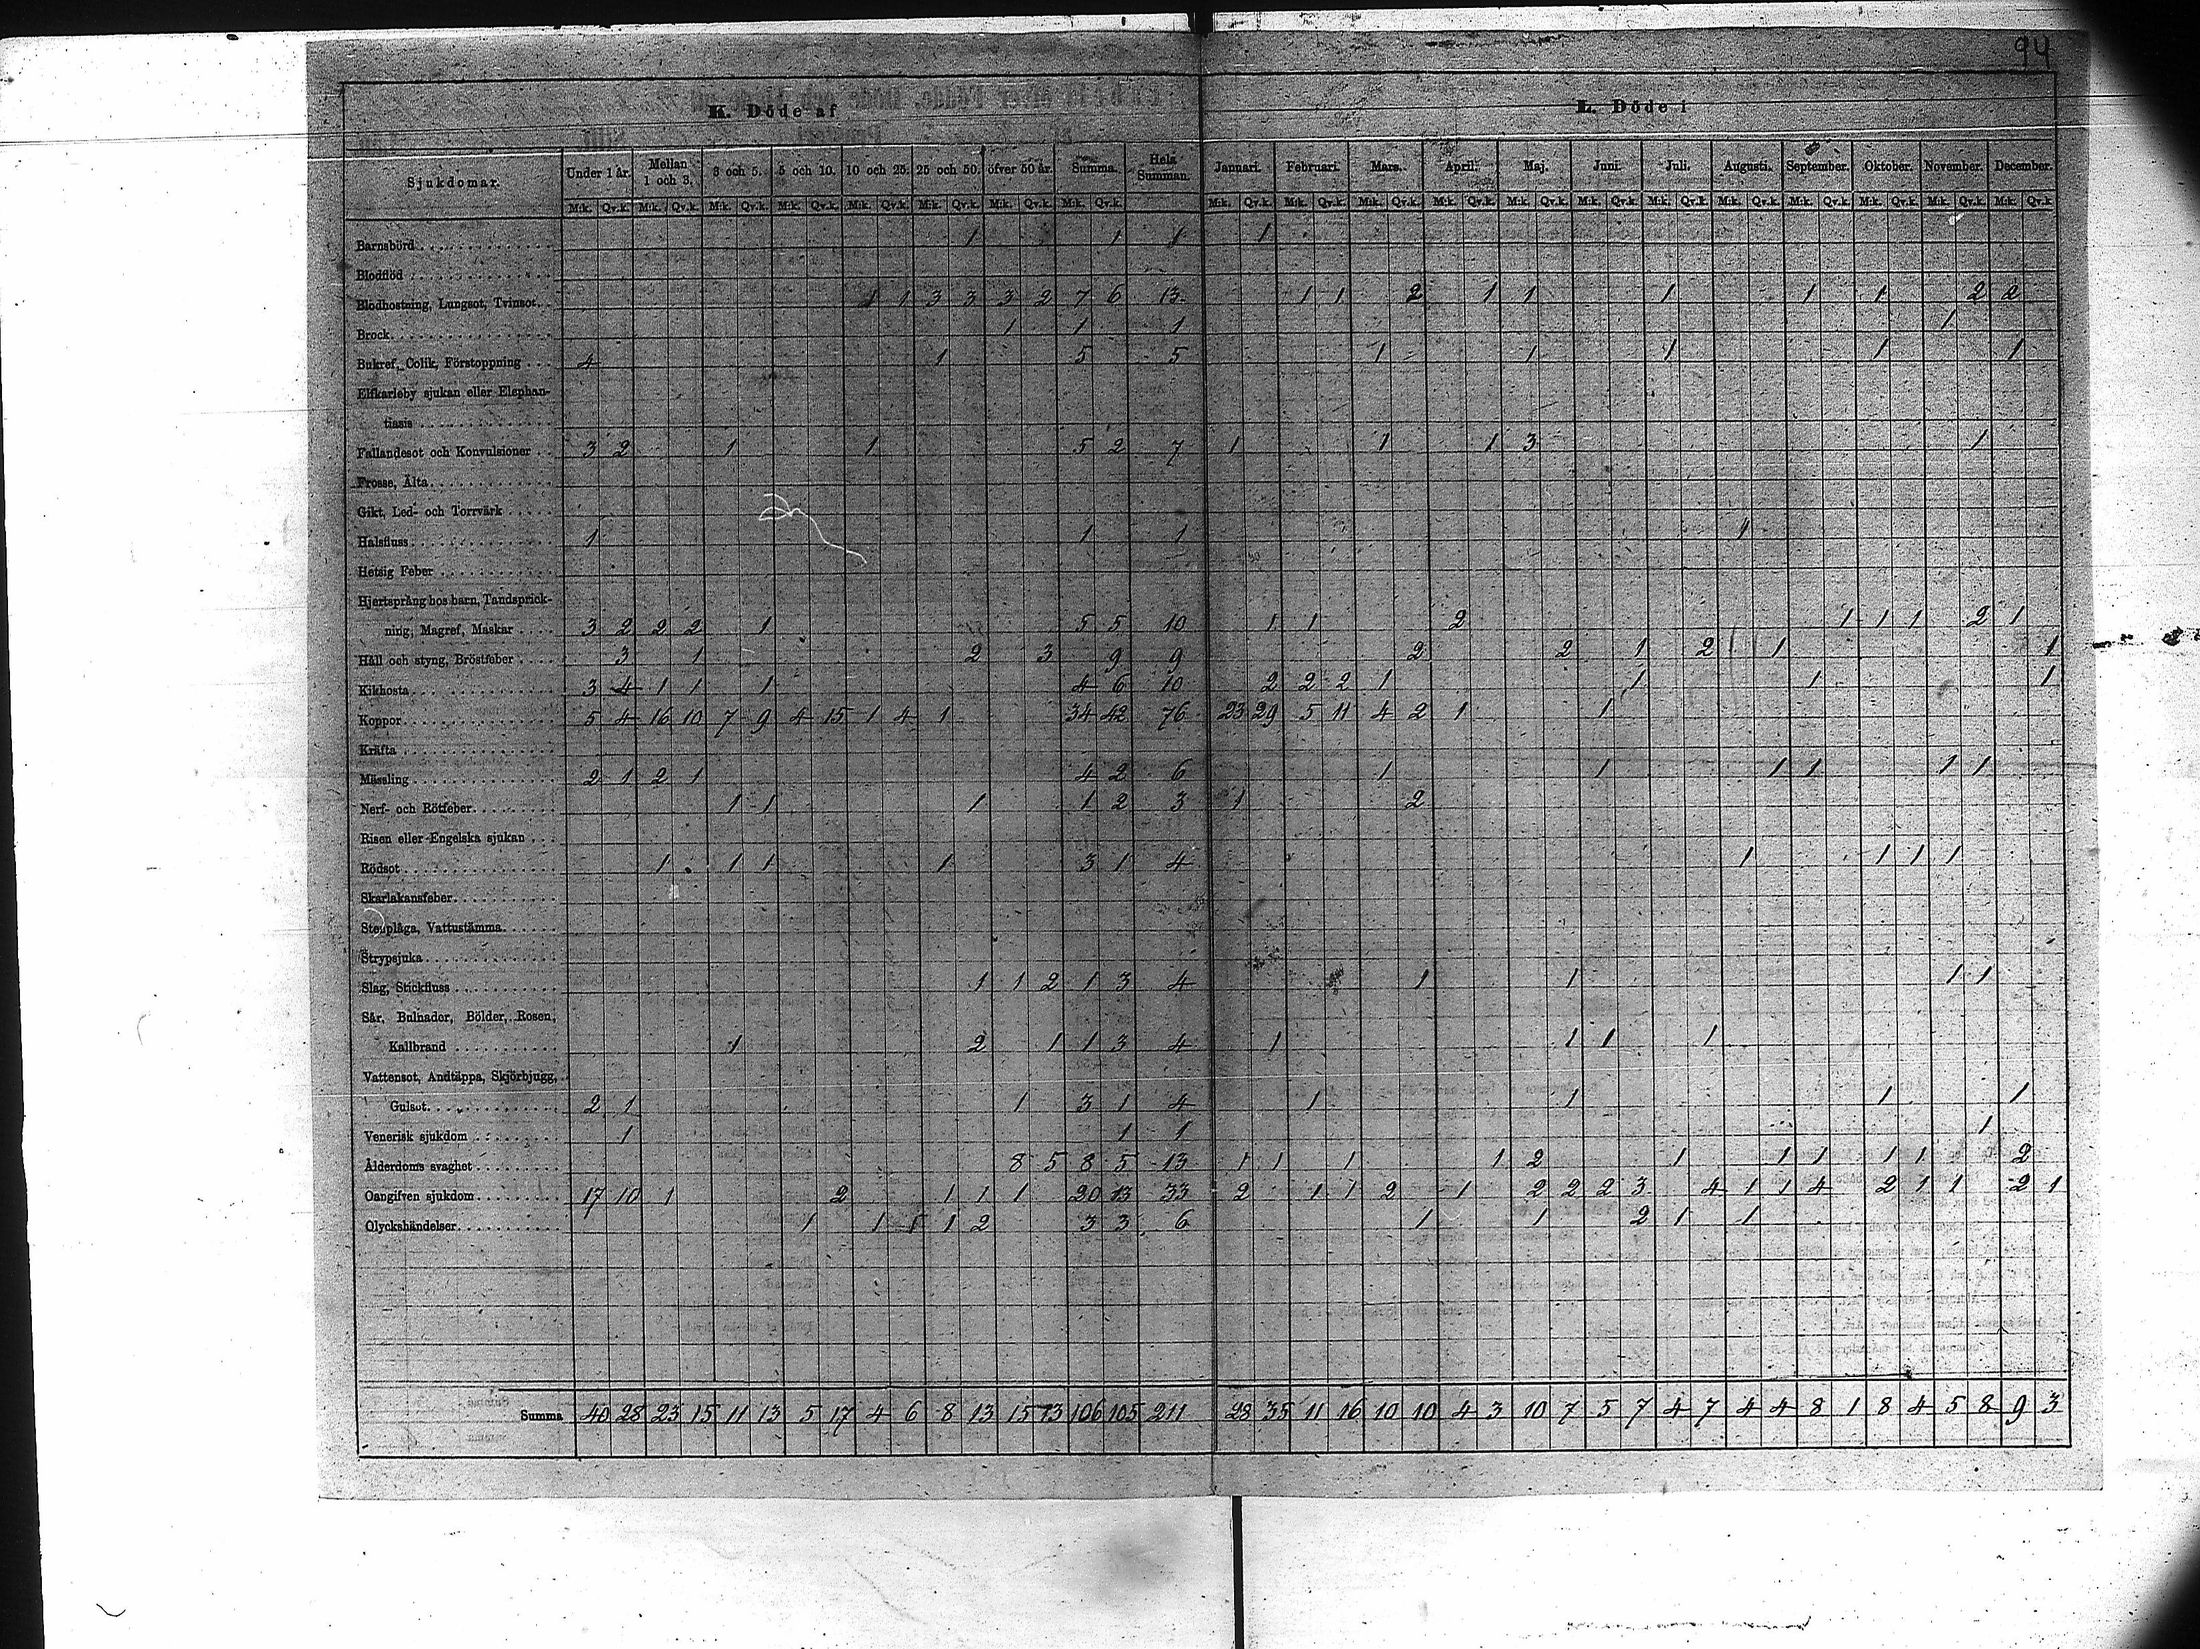 94
K. Döde af L. Döde i
Sjukdomar. Under 1 år. Mellan 1 och 3. 3 och 5. 5 och 10. 10 och 25. 25 och 50. öfver 50 år. Summa. Hela Summan. Januari. Februari. Mars. April. Maj. Juni. Juli. Augusti. September. Oktober. November. December.
M:k. Qv.k. M:k. Qv.k. M:k. Qv.k. M:k. Qv.k. M:k. Qv.k. M:k. Qv.k. M:k. Qv.k. M:k. Qv.k. M:k. Qv.k. M:k. Qv.k. M:k. Qv.k. M:k. Qv.k. M:k. Qv.k. M:k. Qv.k. M:k. Qv.k. M:k. Qv.k. M:k. Qv.k. M:k. Qv.k. M:k. Qv.k. M:k. Qv.k.
Barnsbörd 1 1 1 1
Blodflöd
Blodhostning, Lungsot, Tvinsot 1 1 3 3 3 2 7 6 13 1 1 2 1 1 1 1 1 2 2
Brock 1 1 1 1
Bukref, Colik, Förstoppning 4 1 5 5 1 1 1 1 1
Elfkarleby sjukan eller Elephan-
tiasis
Fallandesot och Konvulsioner 3 2 1 1 5 2 7 1 1 1 3 1
Frosse, Älta
Gikt, Led- och Torrvärk
Halsfluss 1 1 1 1
Hetsig Feber
Hjertsprång hos barn, Tandsprick-
ning, Magref, Maskar 3 2 2 2 1 5 5 10 1 1 2 1 1 1 2 1
Håll och styng, Bröstfeber 3 1 2 3 9 9 2 2 1 2 1 1
Kikhosta 3 4 1 1 1 4 6 10 2 2 2 1 1 1 1
Koppor 5 4 16 10 7 9 4 15 1 4 1 34 42 76 23 29 5 11 4 2 1 1
Kräfta
Mässling 2 1 2 1 4 2 6 1 1 1 1 1 1
Nerf- och Rötfeber 1 1 1 1 2 3 1 2
Risen eller Engelska sjukan
Rödsot 1 1 1 1 3 1 4 1 1 1 1
Skarlakansfeber
Stenplåga, Vattustämma
Strypsjuka
Slag, Stickfluss 1 1 2 1 3 4 1 1 1 1
Sår, Bulnader, Bölder, Rosen,
Kallbrand 1 2 1 1 3 4 1 1 1 1
Vattensot, Andtäppa, Skjörbjugg,
Gulsot 2 1 1 3 1 4 1 1 1 1
Venerisk sjukdom 1 1 1 1
Ålderdoms svaghet 8 5 8 5 13 1 1 1 1 2 1 1 1 1 1 2
Oangifven sjukdom 17 10 1 2 1 1 1 20 13 33 2 1 1 2 1 2 2 2 3 4 1 1 4 2 1 1 2 1
Olyckshändelser 1 1 1 1 2 3 3 6 1 1 2 1 1
Summa 40 28 23 15 11 13 5 17 4 6 8 13 15 13 106 105 211 28 35 11 16 10 10 4 3 10 7 5 7 4 7 4 4 8 1 8 4 5 8 9 3